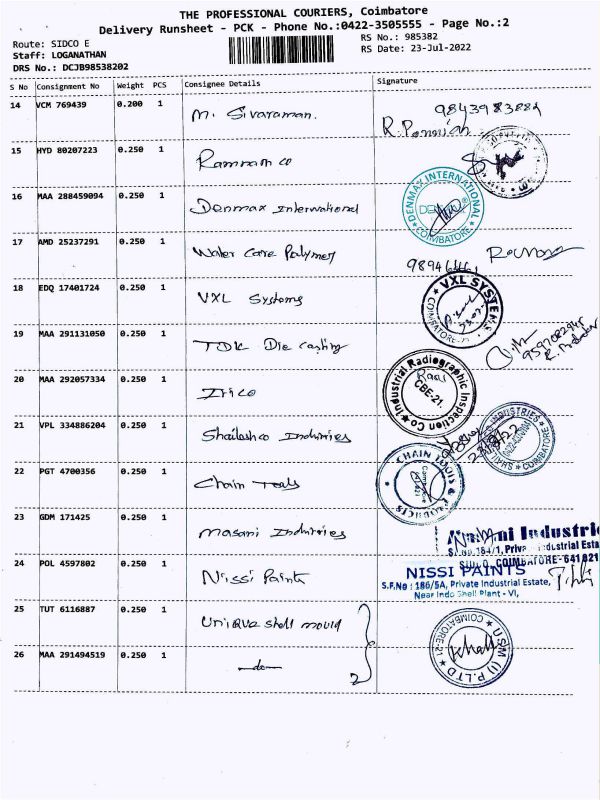 THE PROFESSIONAL COURIERS, Coimbatore
Delivery Runsheet - PCK - Phone No.:0422-3505555 - Page No.:2
Route: SIDCO E
RS No.: 985382
Staff: LOGANATHAN
RS Date: 23-Jul-2022
DRS No.: DCJB98538202
S No Consignment No Weight PCS Consignee Details Signature
14 VCM 769439 0.200 1 M. Sivaraman.
15 HYD 80207223 0.250 1 Ramram co
16 MAA 288459094 0.250 1 Denmax International
DENMAX INTERNATIONAL COIMBATORE
17 AMD 25237291 0.250 1 Water Care Polymer
18 EDQ 17401724 0.250 1 VXL Systems
VXL SYSTEMS COIMBATORE-21
19 MAA 291131050 0.250 1 TDK Die casting
20 MAA 292057334 0.250 1 Irico
Industrial Radiographic Inspection Co CBE-21.
21 VPL 334886204 0.250 1 Shailashco Industries
INDUSTRIES COIMBATORE
22 PGT 4700356 0.250 1 Chain Tools
CHAIN TOOLS & PRODUCTS
23 GDM 171425 0.250 1 Masani Industries
24 POL 4597802 0.250 1 Nissi Paints
COIMBATORE-641021
NISSI PAINTS
S.F.No : 186/5A, Private Industrial Estate,
Near Indo Shell Plant - VI,
25 TUT 6116887 0.250 1 Unique shell mould
26 MAA 291494519 0.250 1 —do— 2
USM (I) P.LTD COIMBATORE-21